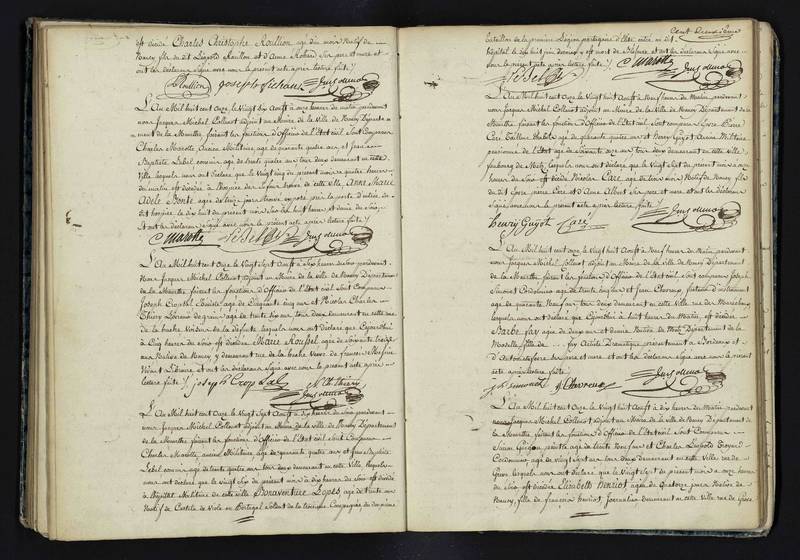 est décédé Charles Christophe Roullion agé d'un mois Natif de
Nancy fils dudit Léopold Roullion et d'Anne Robard Ses pere et mere et
ont les déclarans Signé avec nous le présent acte après lecture faite ./.
Roullion
L'An Mil huit cent Onze, le Vingt Sept Aoust à onze heures du matin pardevant
nous Jacques Michel Collinet adjoint au Maire de la Ville de Nancy Département
de la Meurthe, faisant les fonctions d'Officier de l'Etat civil Sont Comparus
Charles Marotte Ancien Militaire, agé de quarante quatre ans, et Jean
Baptiste Lebel concierge agé de trente quatre ans tous deux demeurant en cette
Ville lesquels nous ont déclaré que le Vingt cinq du présent mois à quatre heures
du matin est décédée à l'hospice de cette ville, Anne Marie
Adele Bonte agée de
dit hospice le dix huit du présent mois huit heures et demie du Soir
Et ont les déclarans Signé avec nous le présent acte après lecture faite ./.
C Marotte
L'An Mil huit cent Onze, le Vingt Sept Aoust à dix heures du Soir pardevant
Nous Jacques Michel Collinet adjoint au Maire de la Ville de Nancy Département
de la Meurthe faisant les fonctions d'Officier de l'Etat civil Sont Comparus
Joseph agé de Cinquante cinq ans et Nicolas Charles
Thiery agé de trente six ans tous deux demeurant en cette rue
de la hache Voisins de la défunte lesquels nous ont déclaré que Cejourdhui
à Cinq heures du Soir est décédée Marie Roussel agée de Soixante treize
ans Native de Nancy y demeurant rue de la hache Veuve de françois
Vivant Libraire et ont les déclarans Signé avec nous le présent acte après
lecture faite ./.
N. Ch. Thiery
L'An Mil huit cent Onze, le Vingt Sept Aoust à dix heures du Soir pardevant
nous Jacques Michel Collinet adjoint au Maire de la ville de Nancy Département
de la Meurthe, faisant les fonctions d'Officier de l'Etat civil Sont Comparus
Charles Marotte, ancien Militaire, agé de quarante quatre ans et Jean Baptiste
Lebel concierge agé de trente quatre ans tous deux demeurant en cette Ville, lesquels
nous ont déclaré que le Vingt Sept du présent mois à heures du Soir est décédé
à l'hopital Militaire de cette ville Bonaventure Lopes agé de trente ans
Natif de Castelo de Viole en Portugal Soldat de la troisieme Compagnie du deuxieme
Cent deuxieme
bataillon de la premiere Légion portugaise d'Elite entré audit
hôpital le dix huit juin dernier y est mort de et ont les déclarans Signé avec
nous le présent acte après lecture faite ./.
C Marotte
L'An Mil huit cent Onze le Vingt huit Aoust à Neuf heures du Matin pardevant
nous Jacques Michel Collinet adjoint au Maire de la Ville de Nancy Département de la
Meurthe faisant les fonctions d'Officier de l'Etat civil Sont comparus Pierre
Caré Tailleur agé de quarante quatre ans et Henry Guyot Ancien Militaire
pensionné de l'Etat agé de Soixante onze ans tous deux demeurant en cette ville,
faubourg de Metz, lesquels nous ont déclaré que le Vingt Sept du présent mois à onze
heures du Soir est décédé Nicolas Caré agé de trois mois Natif de Nancy fils
du dit Pierre Caré et d'Anne Albert Ses pere et mere et ont les déclarans
Signé avec nous le présent acte après lecture faite ./.
henry Guyot Caré
L'An Mil huit cent Onze le Vingt huit Aoust à Neuf heures du Matin, pardevant
nous Jacques Michel Collinet adjoint au Maire de la Ville de Nancy Département
de la Meurthe, faisant les fonctions d'Officier de l'Etat civil, Sont comparus Joseph
Simonet Cordonnier agé de trente cinq ans et Jean Chevreux, facteur d'instrument
agé de quarante Neuf ans tous deux demeurant en cette ville rue de Marechaux
lesquels nous ont déclaré que Cejourdhui à huit heures du matin est décédée
Barbe fay agée de deux ans et demie Native de Metz Département de la
Moselle fille de ... fay Artiste Dramatique présentement à Bordeaux et
d'Antoinette ses pere et mere, et ont les déclarans Signé avec nous le présent
acte après lecture faite ./.
J Simonet J Chevreux
L'An Mil huit cent Onze le Vingt huit Aoust à dix heures du Matin pardevant
nous Jacques Michel Collinet adjoint au Maire de la ville de Nancy Département de
la Meurthe faisant les fonctions d'Officier de l'Etat civil Sont Comparus
agé de trente Neuf ans et Charles Léopold
Cordonnier, agé de Vingt sept ans tous deux demeurant en cette Ville rue de
Grève, lesquels nous ont déclaré que le Vingt Sept du présent mois à onze heures
du Soir est décédée Elizabeth henriot agée de Quatorze jours Native de
Nancy, fille de françois henriot, Journalier demeurant en cette Ville rue de Grève